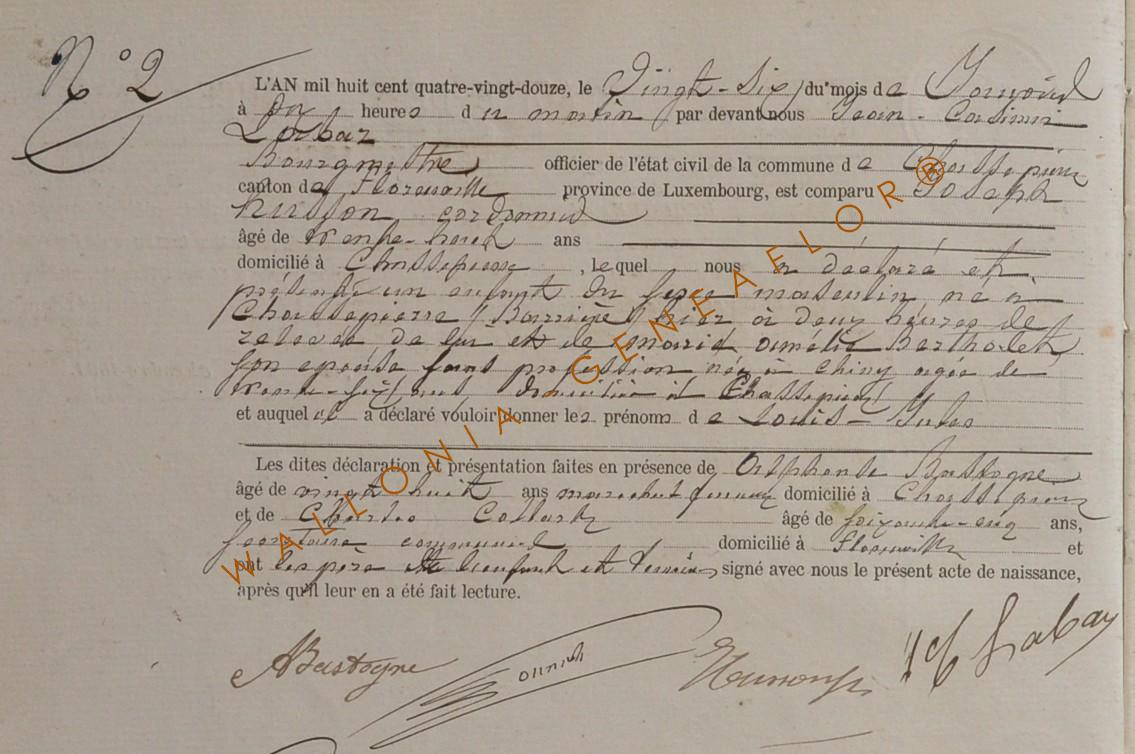 N° 2
L'AN mil huit cent quatre-vingt-douze, le Vingt-Six du mois de Janvier
à dix heures du matin par devant nous Jean-Casimir
Labbaz
Bourgmestre officier de l'état civil de la commune de Chassepierre
canton de Florenville province de Luxembourg, est comparu Joseph
Husson cordonnier
âgé de trente-neuf ans
domicilié à Chassepierre, Lequel nous a déclaré et
présenté un enfant du sexe masculin né à
Chassepierre (Barrière) hier à deux heures de
relevée de lui et de Marie Amélie Bertholet
son épouse sans profession née à Chiny agée de
trente-sept ans domiciliée à Chassepierre
et auquel il a déclaré vouloir donner les prénoms de Louis-Jules
Les dites déclaration et présentation faites en présence de Alphonse Bastogne
âgé de vingt huit ans marechal ferrant domicilié à Chassepierre
et de Charles Collard âgé de soixante-cinq ans,
secrétaire communal domicilié à Florenville et
ont les père de l'enfant et témoins signé avec nous le présent acte de naissance,
après qu'il leur en a été fait lecture.
WALLONIA GENEAELOR ®
ABastogne